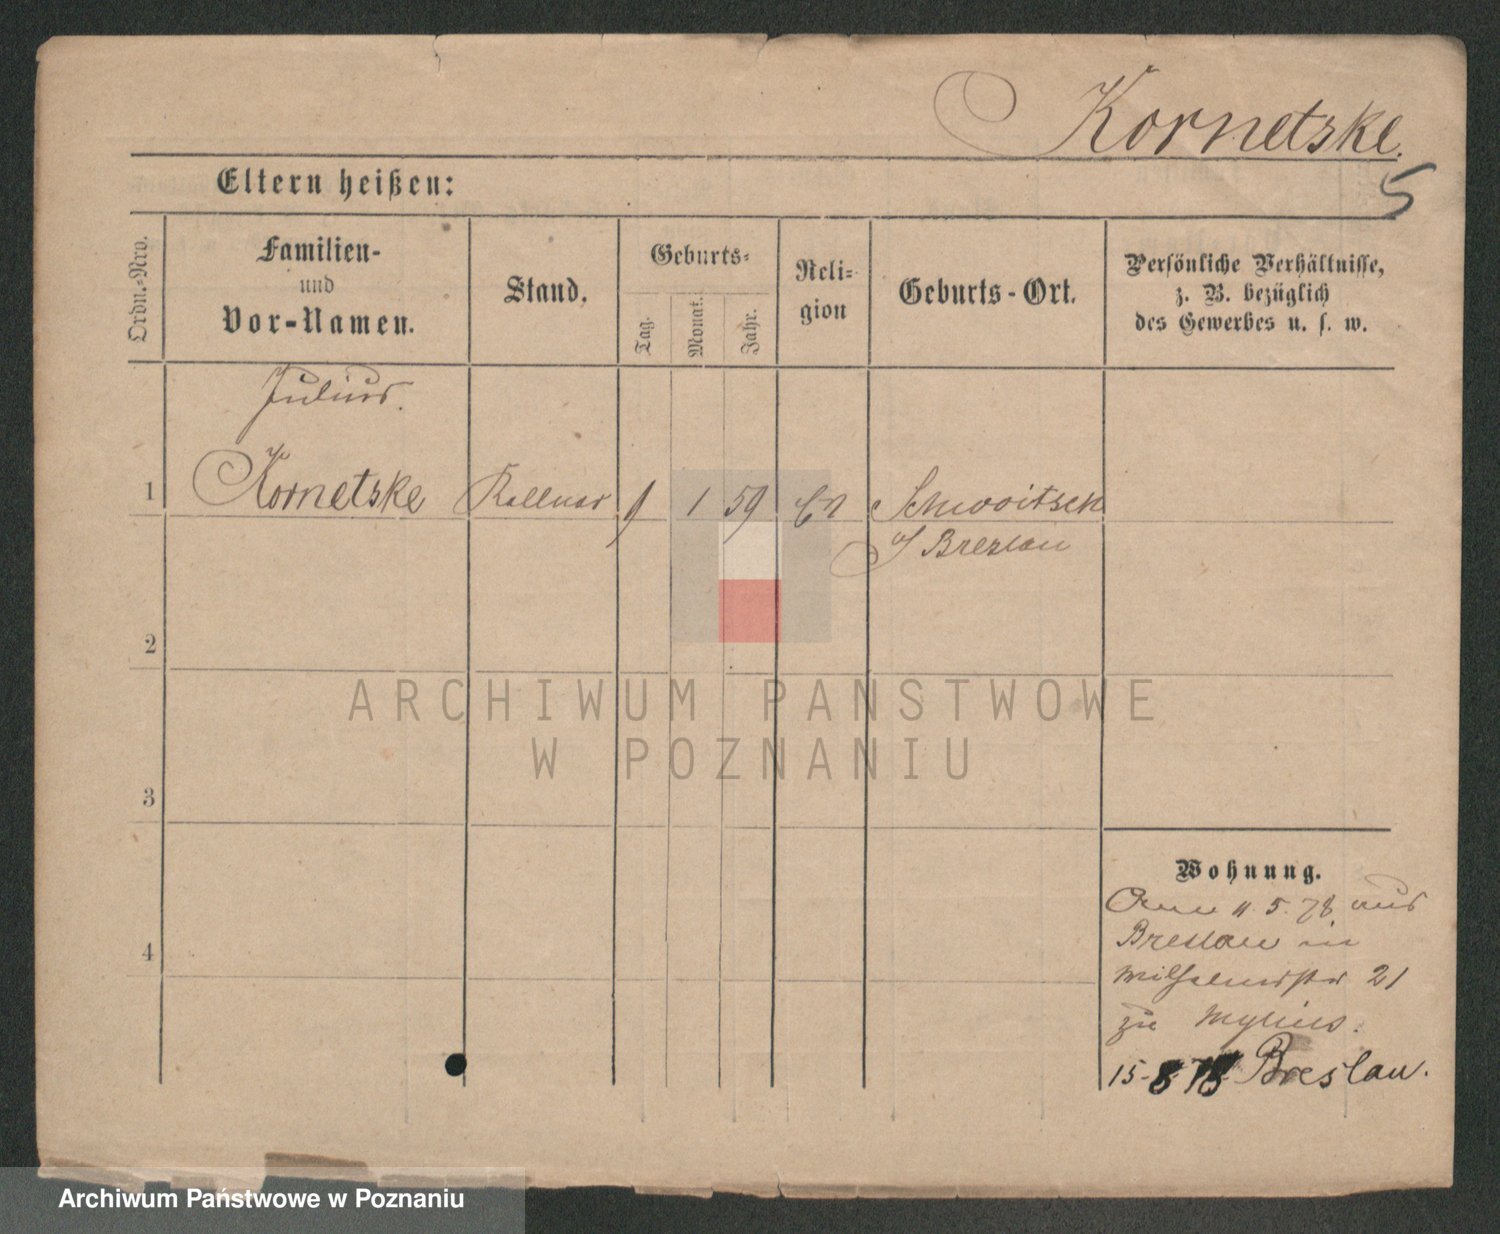 Kornetske.
5
Eltern heißen:
Ordn.-Nro.
Familien-
und
Vor-Namen.
Stand.
Geburts-
Tag.
Monat.
Jahr.
Reli-
gion
Geburts-Ort.
Persönliche Verhältnisse,
z. B. bezüglich
des Gewerbes u. s. w.
Julius.
1 Kornetske Kellner 9 1 59 Ev Schmoitsch
b/ Breslau
2
3
4
ARCHIWUM PAŃSTWOWE
W POZNANIU
Wohnung.
11. 5. 78 aus
Breslau in
Wilhelmstr 21
zu Mylius.
15-8 78 Breslau.
Archiwum Państwowe w Poznaniu